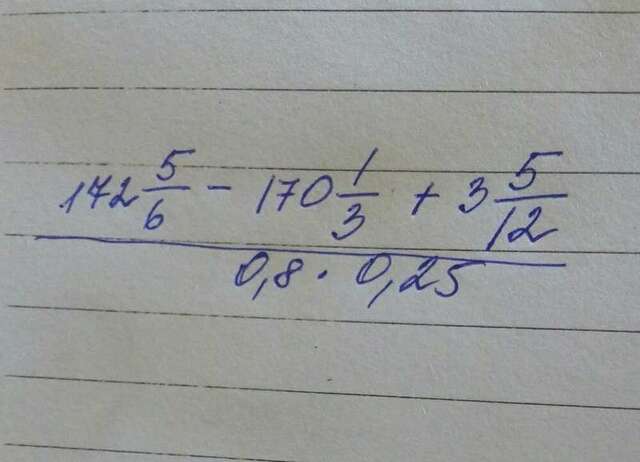 172 5/6 - 170 1/3 + 3 5/12
0,8 · 0,25